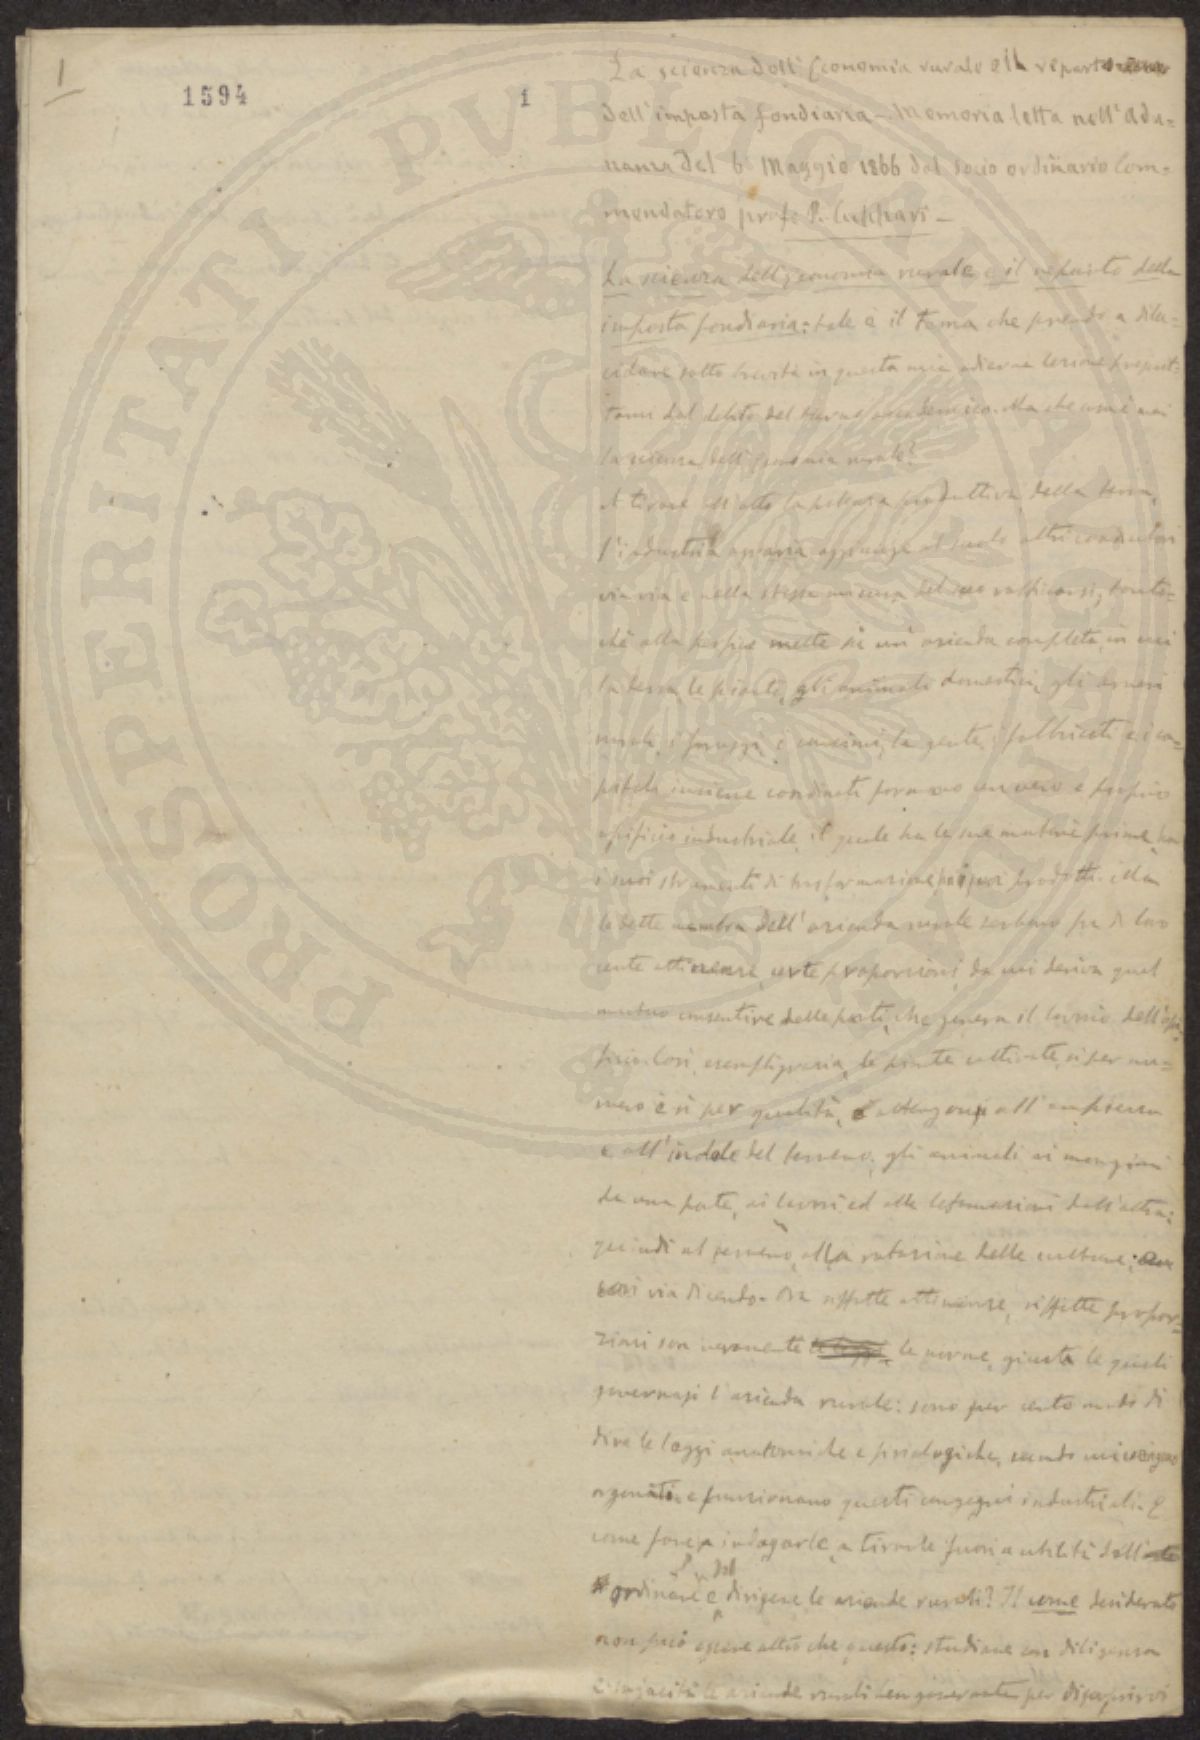 1
1594
1
La scienza dell'Economia rurale e il reparto
dell'imposta fondiaria – Memoria letta nell'Adu=
nanza del 6 Maggio 1866 dal Socio ordinario Com=
mendatore prof. P. Cuppari –
La scienza dell'Economia rurale e il reparto della
imposta fondiaria: tale è il tema che prendo a dilu=
cidare sotto brevità in questa mia odierna lezione
dal debito del turno accademico. Ma che cosa è mai
la scienza dell'Economia rurale?
A tirare all'atto la potenza produttiva della terra,
l'industria agraria aggiunge al suolo altri
via via e nella stessa misura del suo tanto=
chè alla perfine mette su un'azienda completa, in cui
la terra, le piante, gli animali domestici, gli arnesi
rurali, i foraggi, i concimi, la gente, i fabbricati e i ca=
pitali insieme coordinati formano un vero e proprio
opificio industriale, il quale ha le sue materie prime, ha
i suoi strumenti di trasformazione, ha i suoi prodotti.
le dette membra dell'azienda rurale serbano fra di loro
certe attinenze, certe proporzioni, da cui deriva quel
mutuo consentire delle parti, che genera il lavorio dell'opi=
ficio. Così, esempligrazia, le piante coltivate, sì per nu=
mero e sì per qualità, attengonsi all'ampiezza
e all'indole del terreno; gli animali ai mangimi
da una parte, ai lavori ed alle letamazioni dall'altra;
quindi al terreno, alla rotazione delle colture;
così via dicendo. Ora siffatte attinenze, siffatte propor=
zioni son veramente le norme, giusta le quali
governasi l'azienda rurale: sono per certo modo di
dire le leggi anatomiche e fisiologiche, secondo cui
organati e funzionano questi congegni industriali. E
come fare a indagarle, a tirarle fuori a utilità dell'
ordinare e dirigere le aziende rurali? Il come desiderato
non può essere altro che questo: studiare con diligenza
e sagacità le aziende rurali ben governate per discoprirvi